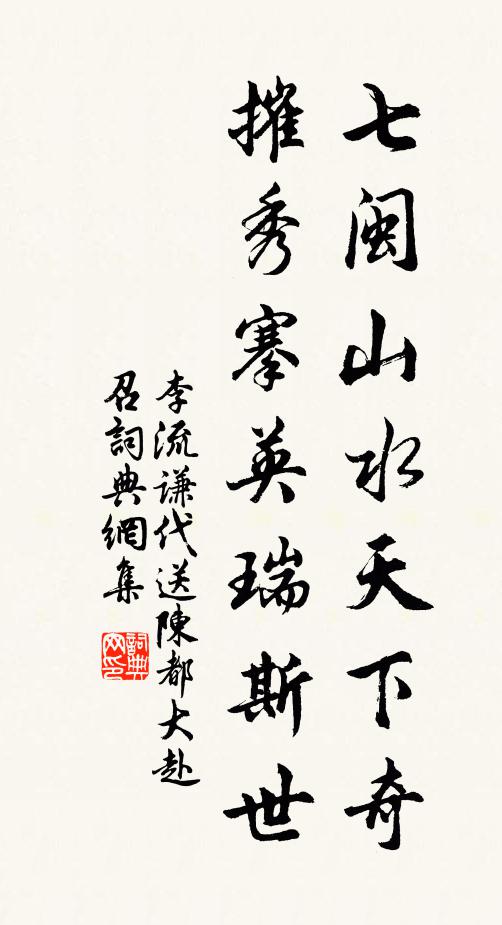 七闽山水天下奇
摧秀搴英瑞斯世
李流谦代送陳都大赴
召詞典網集
詞典网印